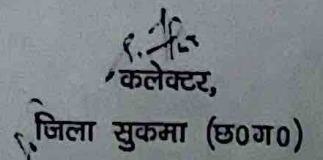 कलेक्टर,
जिला सुकमा (छ0ग0)